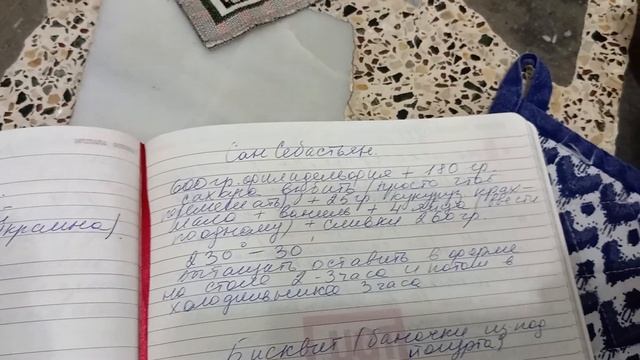 Украина)
Сан Себастьян.
600гр. филадельфия + 180 гр
сахара взбить (просто чтоб
перемешать) + 25 гр кукуруз. крах-
мала + ваниль + яйца (ввести
по одному) + сливки 260 гр
230° – 30'
вытащить оставить в форме
на столе 2-3 часа и потом в
холодильник 3 часа
Бисквит (баночки из под
йогурта)